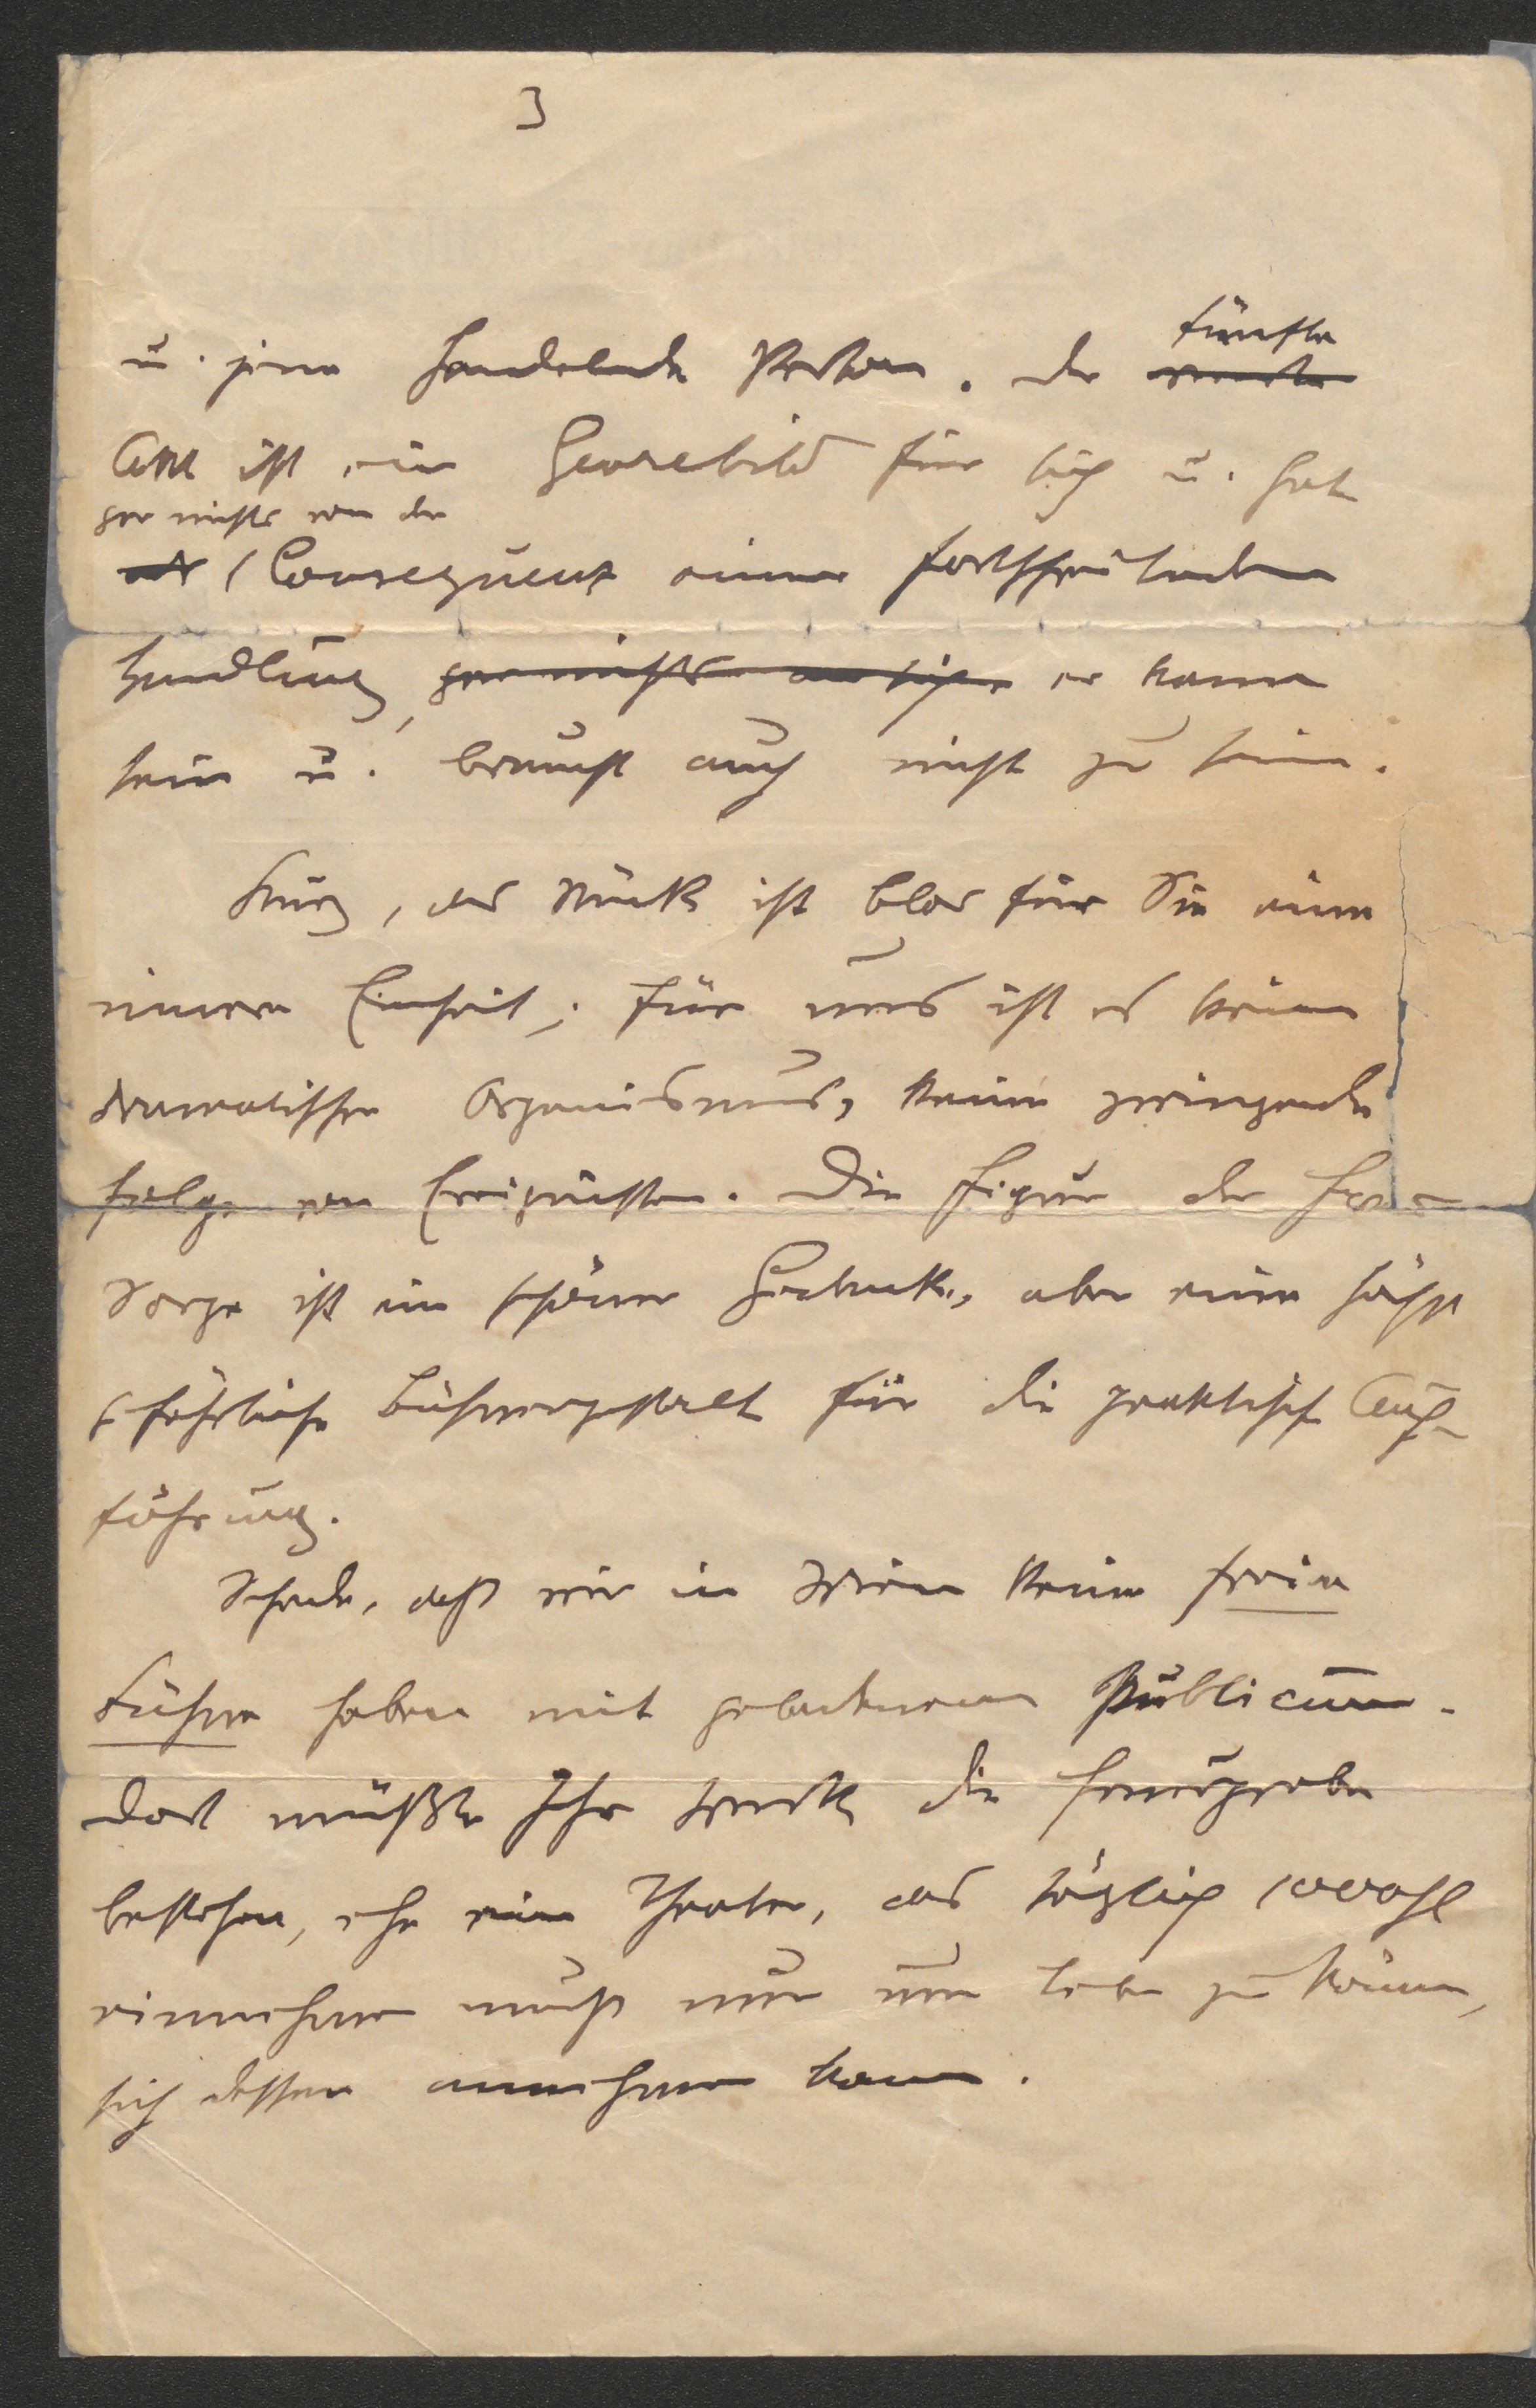 3
u. jene handelnde Person. Der fünfte
Akt ist ein Genrebild für sich u. hat
gar nichts von der
Consequenz einer fortschreitenden
Handlung, gar nichts an sich er kann
sein u. braucht auch nicht zu sein.
Kurz, das Stück ist blos für Sie eine
innere Einheit; für uns ist es kein
dramatischer Organismus, keine zwingende
Folge von Ereignissen. Die Figur der Frau
Sorge ist ein schöner Gedanke, aber eine höchst
gefährliche Bühnengestalt für die praktische Auf-
führung.
Schade, daß wir in Wien keine freie
Bühne haben mit geladenem Publicum.
Dort müßte Ihr Werk die Feuerprobe
bestehen, ehe ein Theater, das täglich 1000 fl
einnehmen muß nur um leben zu können,
sich dessen annehmen kann.